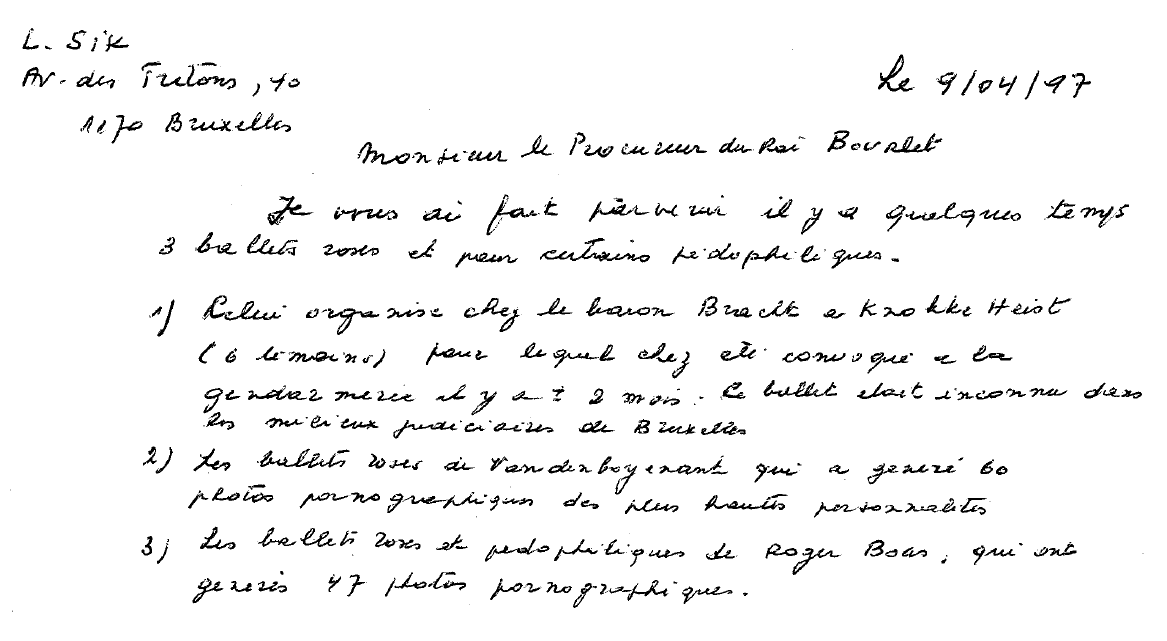 L. Sik
Av. des Tritons, 40
1170 Bruxelles
Le 9/04/97
Monsieur le Procureur du Roi Bourlet
Je vous ai fait parvenir il y a quelques temps
3 ballets roses et pour certains pédophiliques.
1) Celui organise chez le baron Bracht a Knokke Heist
(6 temoins) pour lequel chez été convoqué a la
gendarmerie il y a ± 2 mois. Ce ballet etait inconnu dans
les milieux judiciaires de Bruxelles
2) Les ballets roses de Vandenboyenant qui a generé 60
photos pornographiques des plus hautes personnalites
3) Les ballets roses et pedophiliques de Roger Boas, qui ont
generés 47 photos pornographiques.